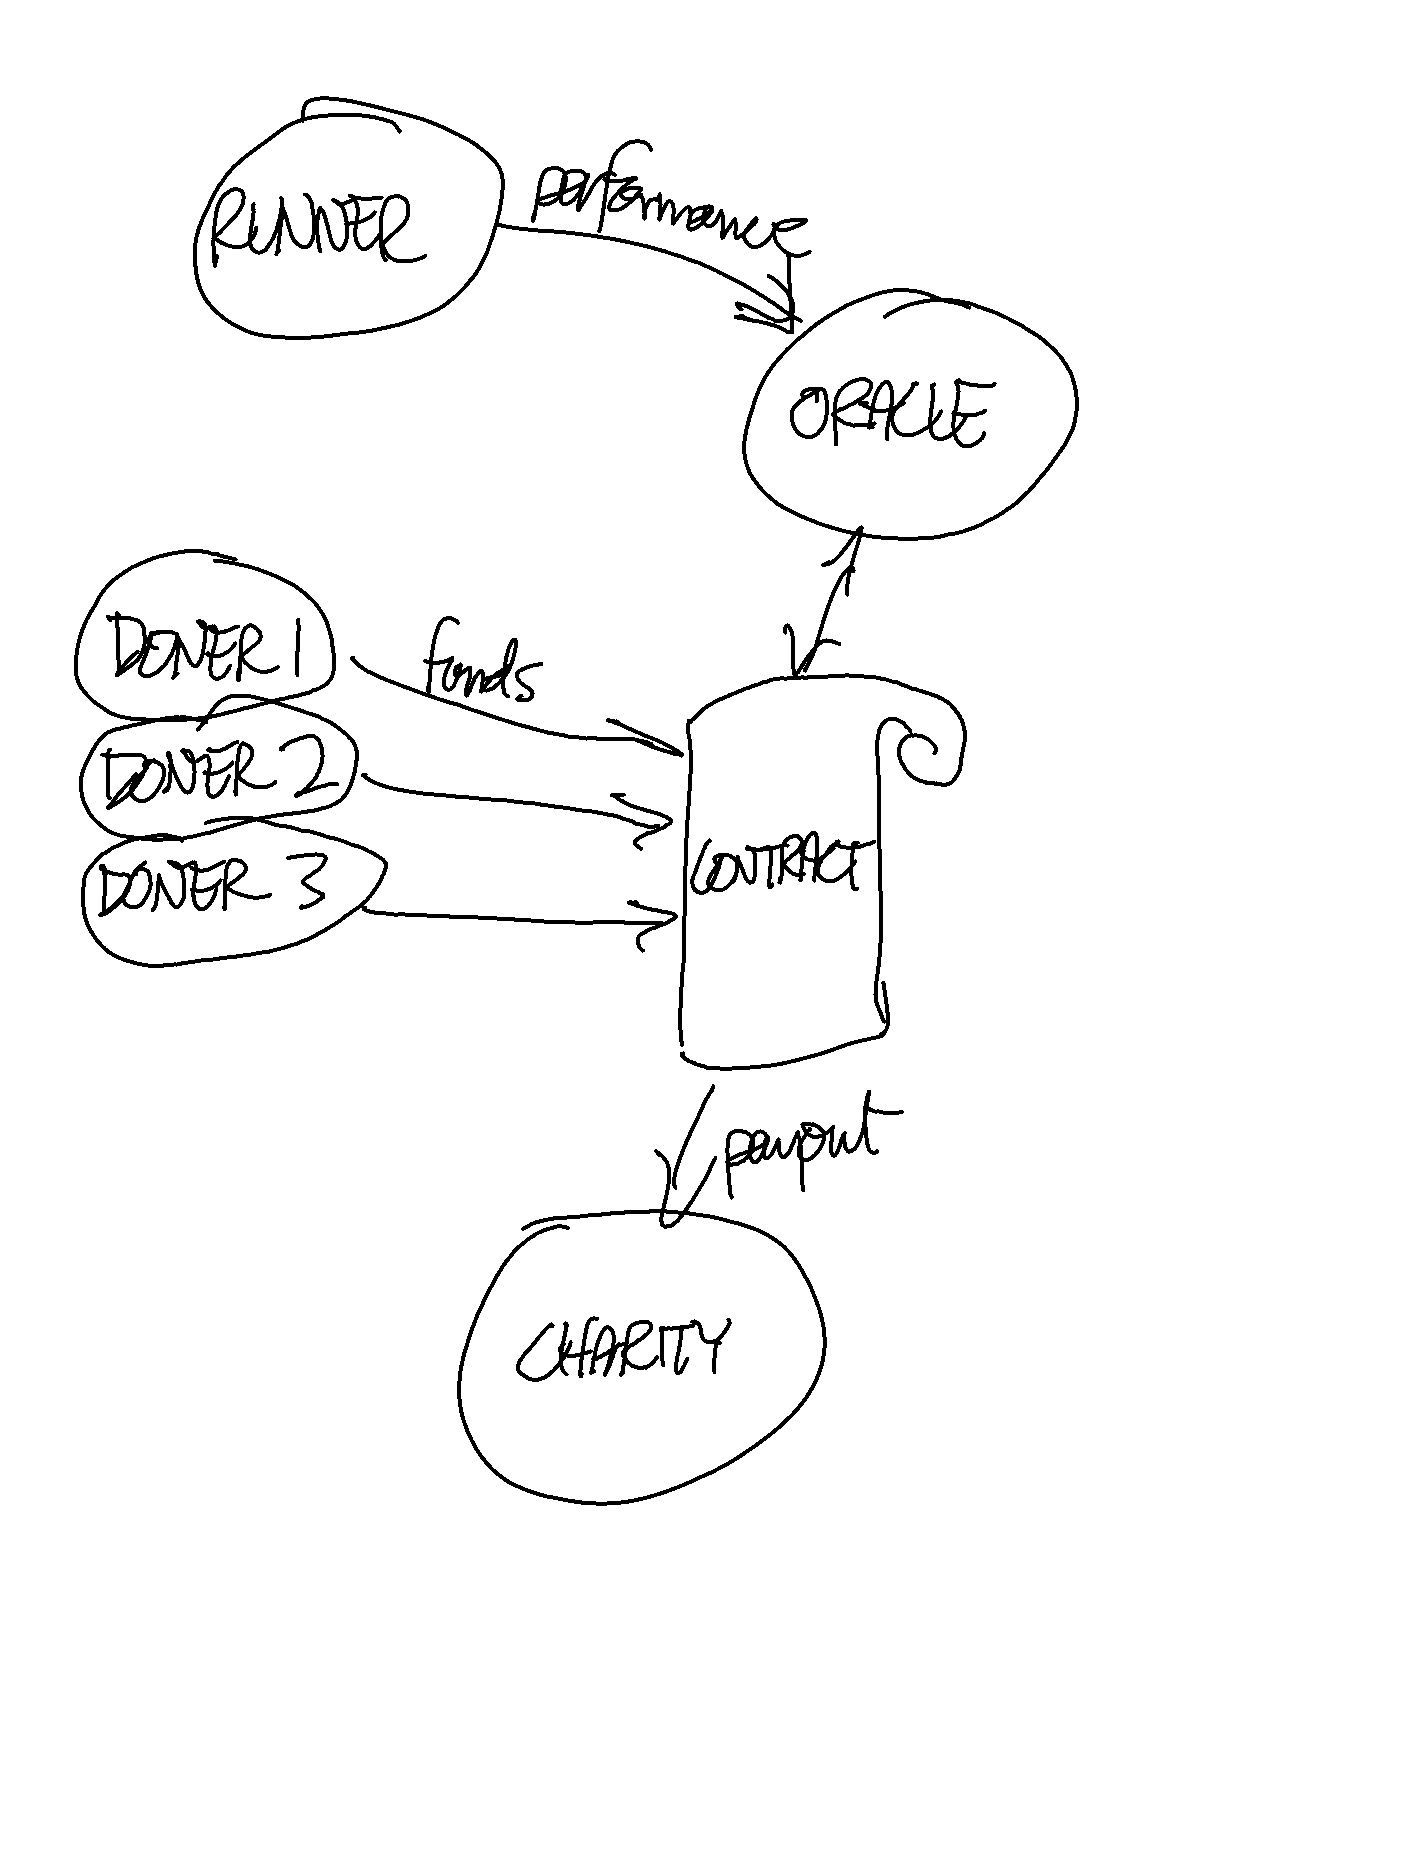 RUNNER
performance
ORACLE
DONER 1
funds
DONER 2
DONER 3
CONTRACT
payout
CHARITY